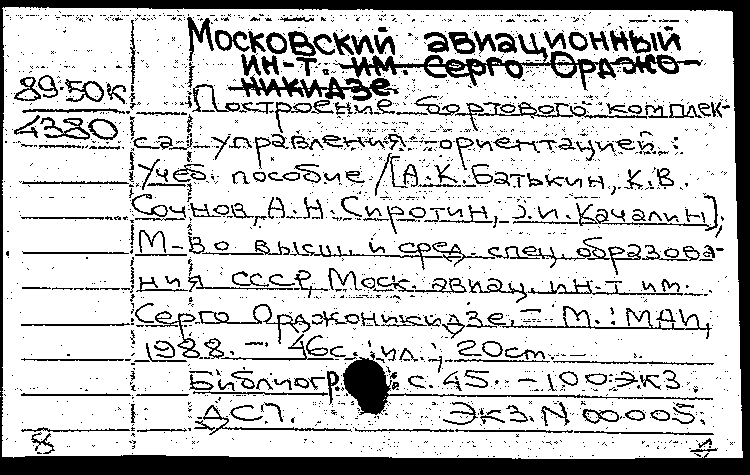 Московский авиационный
ин-т. им. Серго Орджо-
никидзе.
89-50к
4380
Построение бортового комплек-
са управления ориентацией :
Учеб. пособие / [А.К. Батькин, К.В.
Сочнов, А.Н. Сиротин, Э.И. Качалин];
М-во высш. и сред. спец. образова-
ния СССР, Моск. авиац. ин-т им.
Серго Орджоникидзе. – М. : МАИ,
1988. – 46с. : ил. ; 20см. –
Библиогр.: с. 45. – 100 экз.
ДСП. Экз. N 00005.
8 1